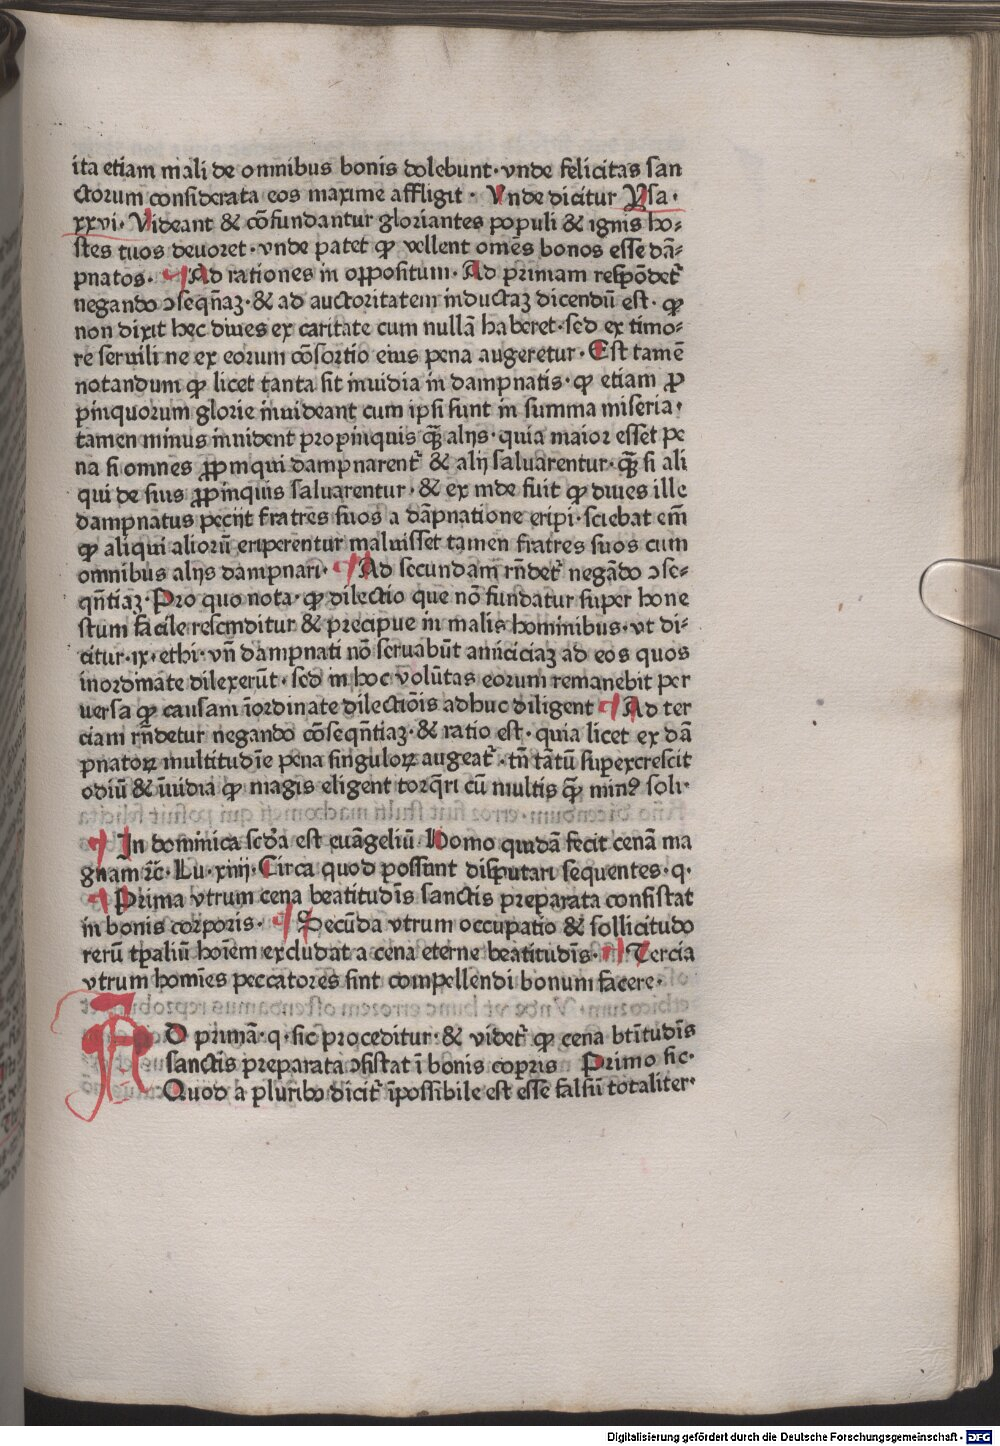 ita etiam mali de omnibus bonis dolebunt·vnde felicitas san
ctorum considerata eos maxime affligit · Vnde dicitur Ysa·
xxvi· Videant & cōfundantur gloriantes populi & ignis ho⸗
stes tuos deuoret·vnde patet ꝙ vellent omēs bonos esse dā⸗
pnatos· ¶Ad rationes in oppositum·Ad primam respōdet᷑
negando ↄseqn̄aꝫ·& ad auctoritatem inductaꝫ dicendū est· ꝙ
non dixit hec diues ex caritate cum nullā haberet·sed ex timo⸗
re seruili ne ex eorum cōsortio eius pena augeretur·Est tamē
notandum ꝙ licet tanta sit inuidia in dampnatis·ꝙ etiam ꝓ
pinquorum glorie inuideant cum ipsi sunt in summa miseria·
tamen minus inuident propinquis qᷓꝫ alijs·quia maior esset pe
na si omnes ꝓpinqui dampnarent᷑ & alij saluarentur·qᷓꝫ si ali
qui de suis ꝓpinquis saluarentur·& ex inde fuit ꝙ diues ille
dampnatus pecijt fratres suos a dāpnatione eripi·sciebat em̄
ꝙ aliqui aliorū eriperentur maluisset tamen fratres suos cum
omnibus alijs dampnari· ¶Ad secundam rn̄det᷑ negādo ↄse⸗
qn̄tiaꝫ·Pro quo nota·ꝙ dilectio que nō fundatur super hone
stum facile rescinditur & precipue in malis hominibus·vt di⸗
citur·ix·ethi·vn̄ dampnati nō seruabūt amiciciaꝫ ad eos quos
inordinate dilexerūt·sed in hoc volūtas eorum remanebit per
uersa ꝙ causam īordinate dilectiōis adhuc diligent ¶Ad ter
ciam rn̄detur negando cōseqn̄tiaꝫ·& ratio est·quia licet ex dā
pnatoꝝ multitudīe pena singuloꝝ augeat᷑·tn̄ tātū supexcrescit
odiū & īuidia ꝙ magis eligent torqr̄i cū multis qᷓꝫ minꝰ soli·
¶In dominica scd̄a est euāgeliū·Homo quidā fecit cenā ma
gnam ⁊c̄·Lu·xiiij·Circa quod possunt disputari sequentes·q·
¶Prima vtrum cena beatitudīs sanctis preparata consistat
in bonis corporis· ¶Secūda vtrum occupatio & sollicitudo
rerū tp̄aliū hoīem excludat a cena eterne beatitudīs· ¶Tercia
vtrum homīes peccatores sint compellendi bonum facere·
AD primā·q·sic proceditur·& videt᷑ ꝙ cena bt̄itudīs
sanctis preparata ↄsistat ī bonis copris Primo sic·
Quod a pluribꝰ dicit᷑ īpossibile est esse falsū totaliter·
Digitalisierung gefördert durch die Deutsche Forschungsgemeinschaft - DFG